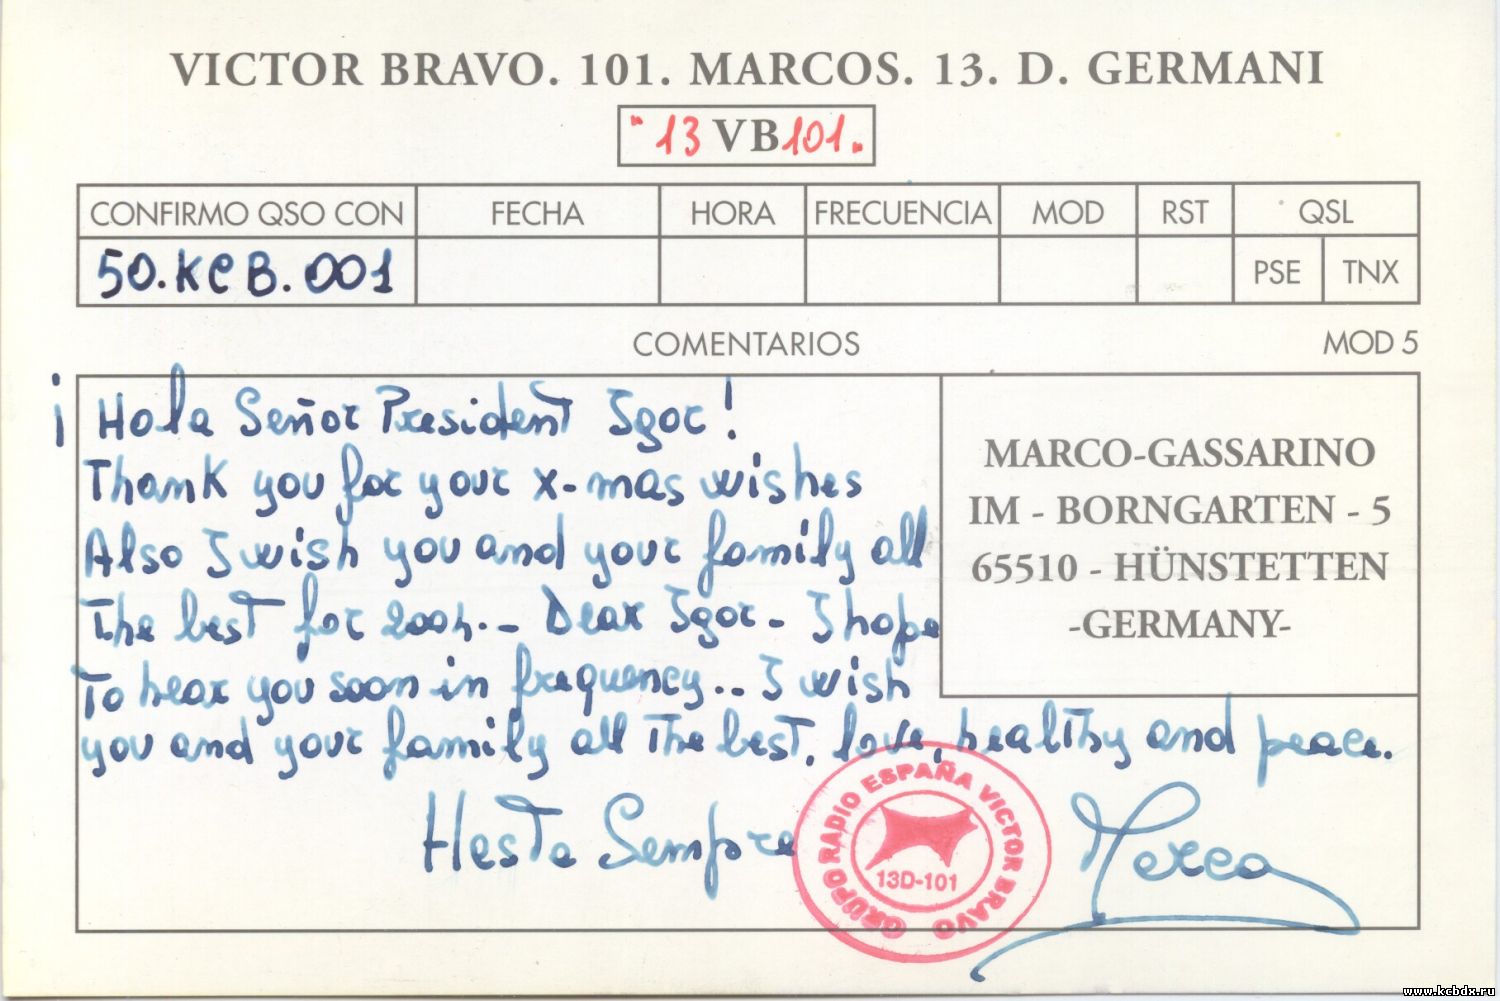 VICTOR BRAVO. 101. MARCOS. 13. D. GERMANI
"13 VB 101"
CONFIRMO QSO CON FECHA HORA FRECUENCIA MOD RST QSL
50.KCB.001 PSE TNX
COMENTARIOS MOD 5
¡ Hola Señor President Igor !
Thank you for your x-mas wishes
Also I wish you and your family all
The best for 2004.- Dear Igor - I hope
To hear you soon in frequency.. I wish
you and your family all The best, love, healthy and peace.
MARCO-GASSARINO
IM - BORNGARTEN - 5
65510 - HÜNSTETTEN
-GERMANY-
Hesta Sempre
GRUPO RADIO ESPAÑA VICTOR BRAVO
13D-101
Marco
www.kcbdx.ru